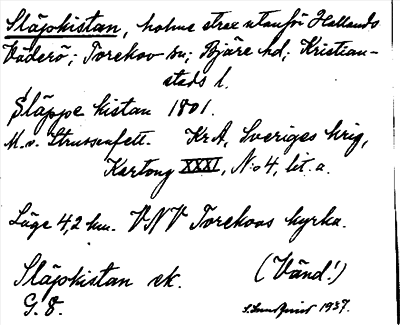 Släpkistan, holme strax utanför Hallands
Väderö; Torekov sn; Bjäre hd; Kristian-
stads l.
Släppe kistan 1801.
M. v. Strussenfelt. KrA, Sveriges krig,
Kartong XXXI, N:o 4, lit. a.
Läge 4,2 km. VNV Torekovs kyrka.
Släpkistan ek. (Vänd!)
G. 8. 1937.